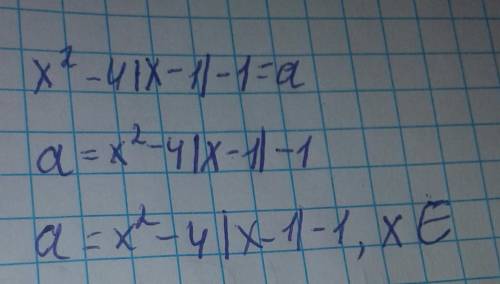 x² - 4|x-1| - 1 = a
a = x² - 4|x-1| - 1
a = x² - 4|x-1| - 1, x ∈